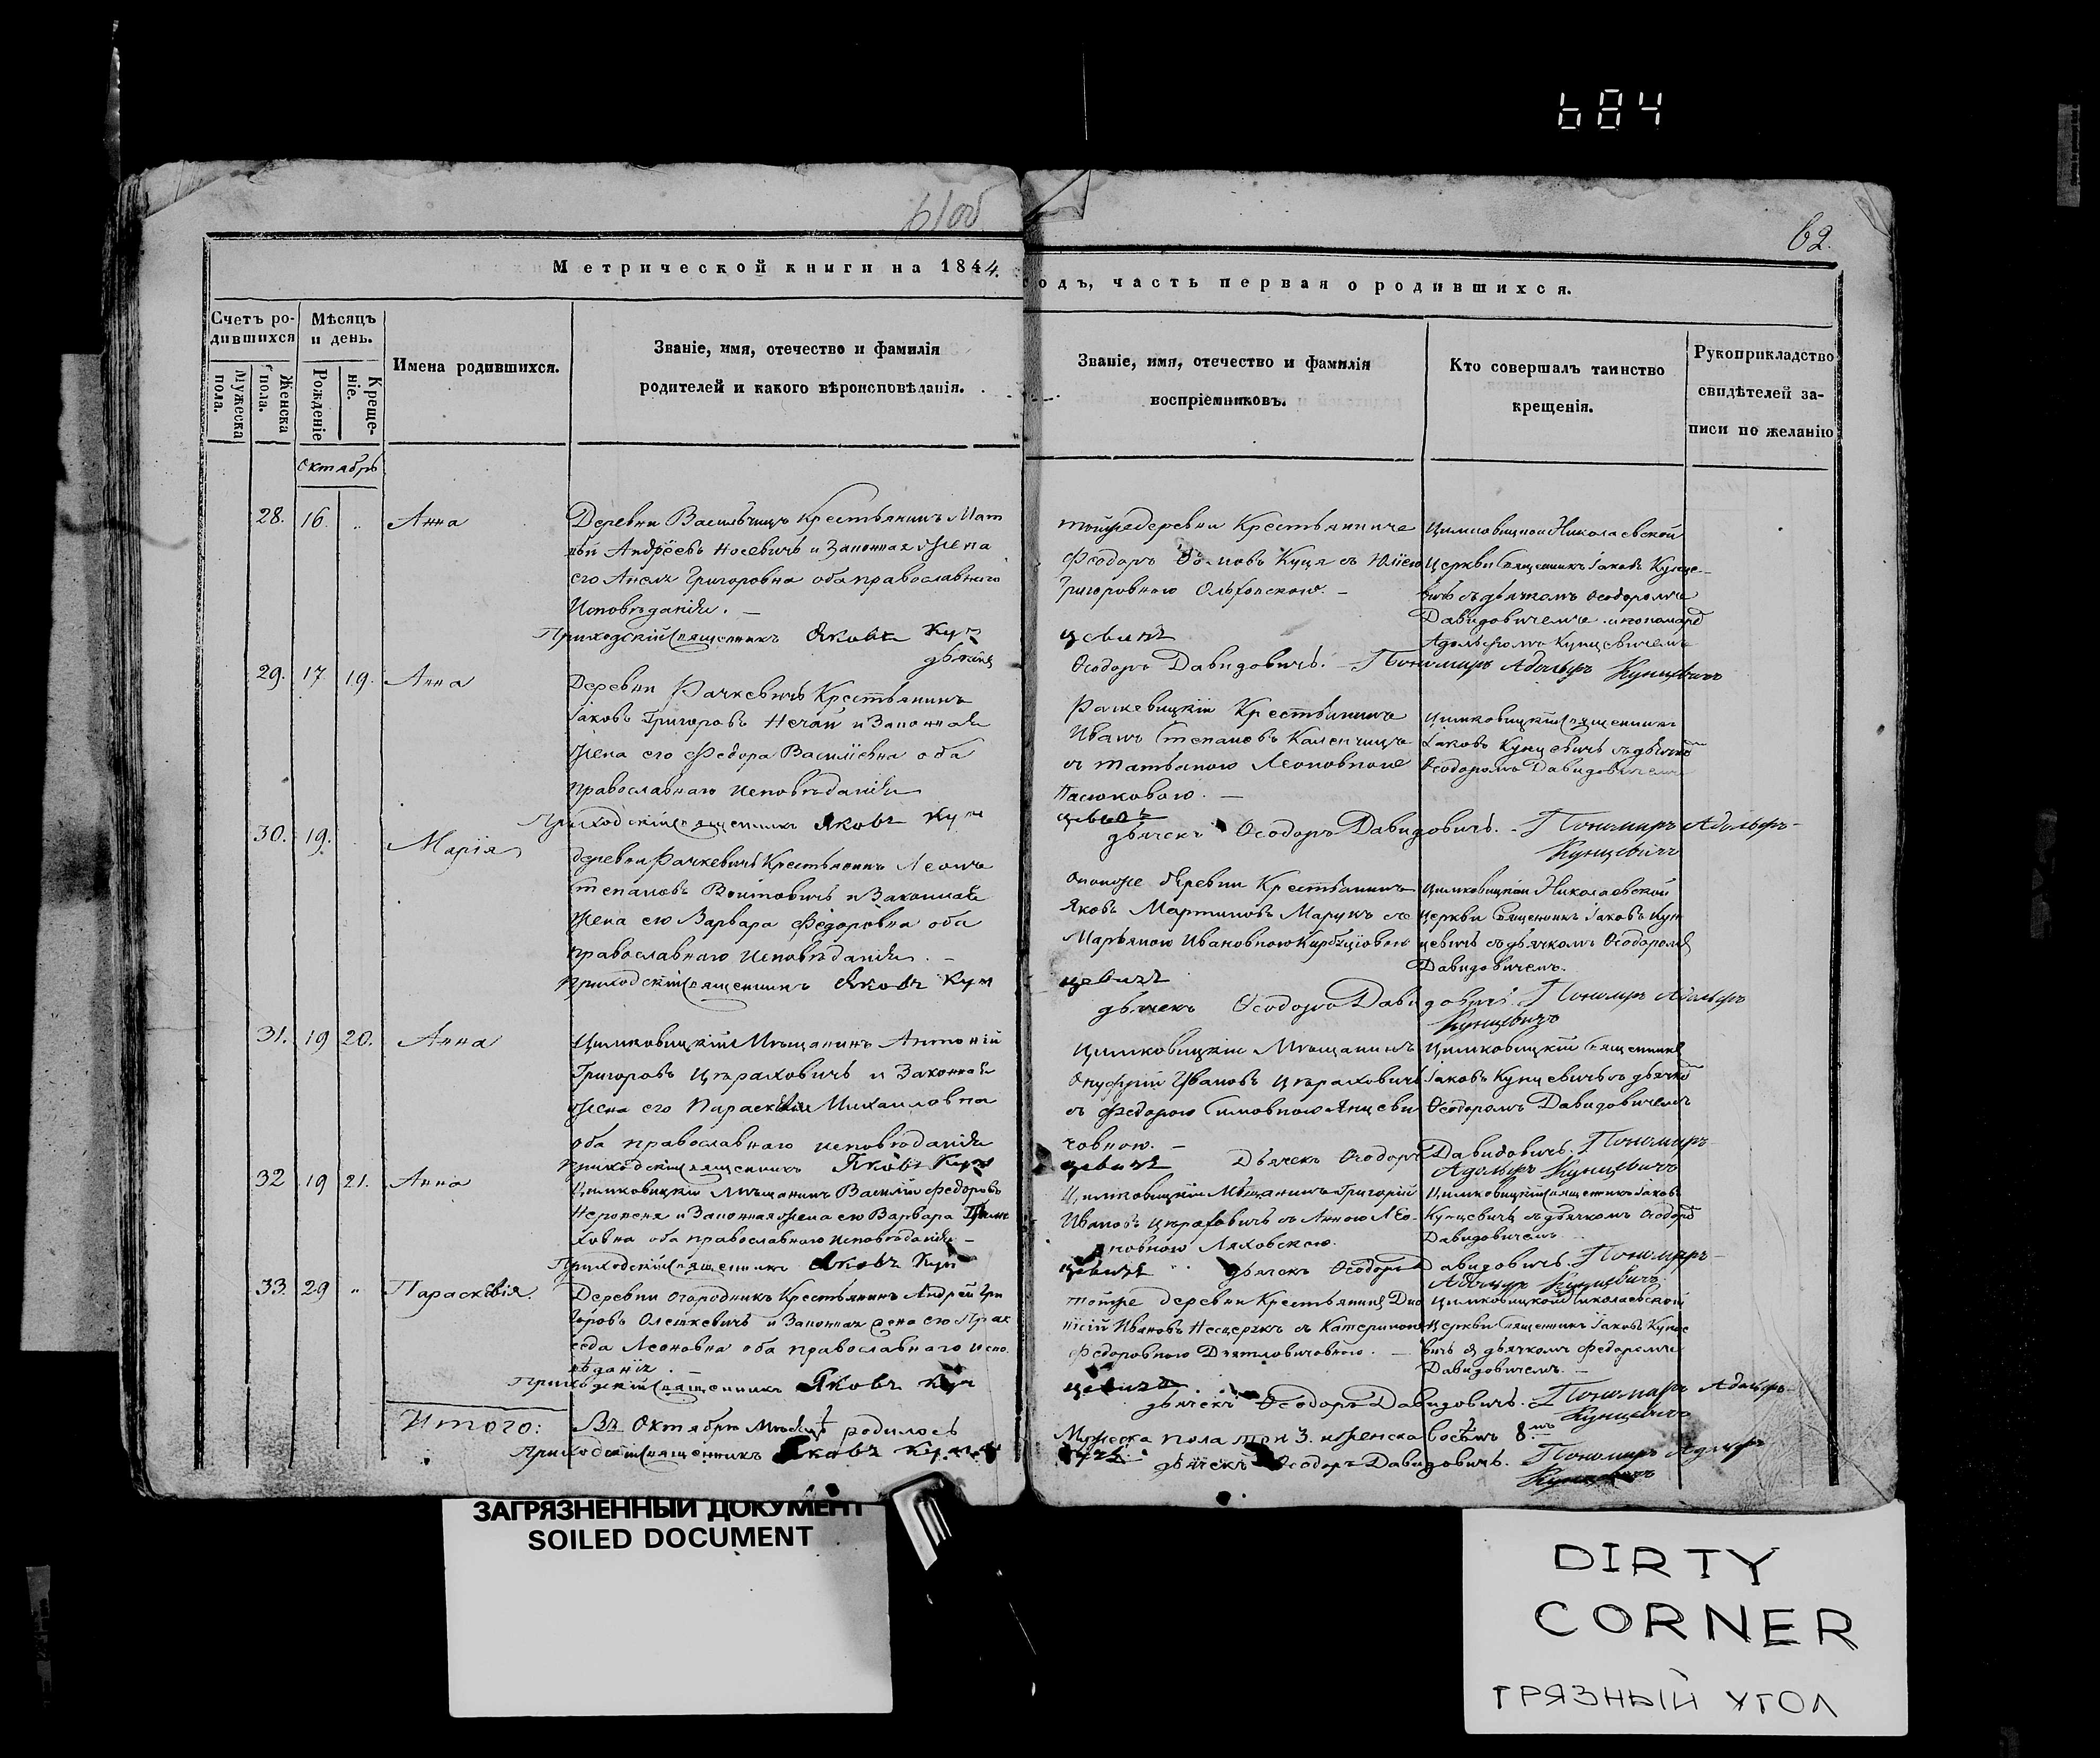 684
61об
62.
Метрической книги на 1844.
годъ, часть первая о родившихся.
Счетъ родившихся
Мужеска пола.
Женска пола.
Мѣсяцъ и день.
Рожденіе
Крещеніе.
Имена родившихся.
Званіе, имя, отечество и фамилія
родителей и какого вѣроисповѣданія.
Званіе, имя, отечество и фамилія
воспріемниковъ.
Кто совершалъ таинство
крещенія.
Рукоприкладство
свидѣтелей за-
писи по желанію
Октябрь
28. 16. „ Анна
Деревни Васильчицъ Крестьянинъ Мат
ѳей Андрѣевъ Носевичъ и Законная Жена
его Григоровна оба православнаго
Исповѣданія. —
Приходскій Священникъ Яковъ Кун
тойже деревни Крестьянинъ
Феодоръ Куця съ Юліею
Григоровною
цевичъ
Ѳеодоръ Давидовичъ. — Пономарь Адольфъ Кунцевичъ
Николаевской
Церкви Священникъ Іаковъ Кунце-
вичъ съ дьячкомъ Ѳеодоромъ
Давидовичемъ и пономаремъ
Адольфомъ Кунцевичемъ
29. 17 19. Анна
Деревни Рачкевичъ Крестьянинъ
Іаковъ Григоровъ Нечай и Законная
Жена его Федора Василіевна оба
православнаго исповѣданія
Приходскій Священникъ Яковъ Кун
Рачкевицкій Крестьянинъ
Иванъ Степановъ Каленчицъ
съ Татьяною Леоновною
Пасюковою. —
цевичъ
дьячекъ Ѳеодоръ Давидовичъ. — Пономарь Адольфъ
Кунцевичъ
Цимковицкій Священникъ
Іаковъ Кунцевичъ съ дьячкомъ
Ѳеодоромъ Давидовичемъ
30. 19. Марія
деревни Рачкевичъ Крестьянинъ Леонъ
Степановъ Войтовичъ и Законная
Жена его Варвара Федоровна оба
православнаго исповѣданія. —
Приходскій Священникъ Яковъ Кун
деревни Крестьянинъ
Яковъ Мартиновъ Марукъ съ
Марьяною Ивановною
цевичъ
дьячекъ Ѳеодоръ Давидовичъ. Пономарь Адольфъ
Кунцевичъ
Цимковицкой Николаевской
церкви Священникъ Іаковъ Кун
цевичъ съ дьячкомъ Ѳеодоромъ
Давидовичемъ.
31. 19 20. Анна
Цимковицкій Мѣщанинъ Антоній
Григоровъ Цѣраховичъ и Законная
Жена его Параскевія Михаиловна
оба православнаго исповѣданія
Приходскій Священникъ Яковъ Кун
Цимковицкій Мѣщанинъ
Онуфрій Ивановъ Цѣраховичъ
съ Федорою Симовною Янцеви
човною. —
цевичъ Дьячекъ Ѳеодоръ Давидовичъ. Пономарь
Адольфъ Кунцевичъ
Цимковицкій Священникъ
Іаковъ Кунцевичъ съ дьячкомъ
Ѳеодоромъ Давидовичемъ
32 19 21. Анна
Цимковицкій Мѣщанинъ Василій Федоровъ
и Законная Жена его Варвара
оба православнаго исповѣданія —
Приходскій Священникъ Яковъ Кун
Цимковицкій Мѣщанинъ Григорій
Ивановъ Цѣраховичъ съ Анною Лео-
новною Ляховскою.
цевичъ дьячекъ Ѳеодоръ Давидовичъ. Пономарь
Адольфъ Кунцевичъ
Цимковицкій Священникъ Іаковъ
Кунцевичъ съ дьячкомъ Ѳеодоромъ
Давидовичемъ
33. 29 „ Параскевія.
Деревни Огородникъ Крестьянинъ Андрей Гри
горовъ Олешкевичъ и Законная Жена его Прак
седа Леоновна оба православнаго испо
вѣданія.
Приходскій Священникъ Яковъ Кун
тойже деревни Крестьянинъ Дио
нисій Ивановъ съ Катериною
Федоровною Дзятловичовною. —
цевичъ
дьячекъ Ѳеодоръ Давидовичъ. Пономарь Адольфъ
Кунцевичъ
Цимковицкой Николаевской
Церкви Священникъ Іаковъ Кунце
вичъ съ дьячкомъ Федоромъ
Давидовичемъ. —
Итого: Въ Октябрѣ Мѣсяцѣ родилось
Мужеска пола три 3. и женска восѣмъ 8.мъ
Приходскій Священникъ Яковъ Кунцевичъ
дьячекъ Ѳеодоръ Давидовичъ. Пономарь Адольфъ
Кунцевичъ
ЗАГРЯЗНЕННЫЙ ДОКУМЕНТ
SOILED DOCUMENT
DIRTY
CORNER
ГРЯЗНЫЙ УГОЛ